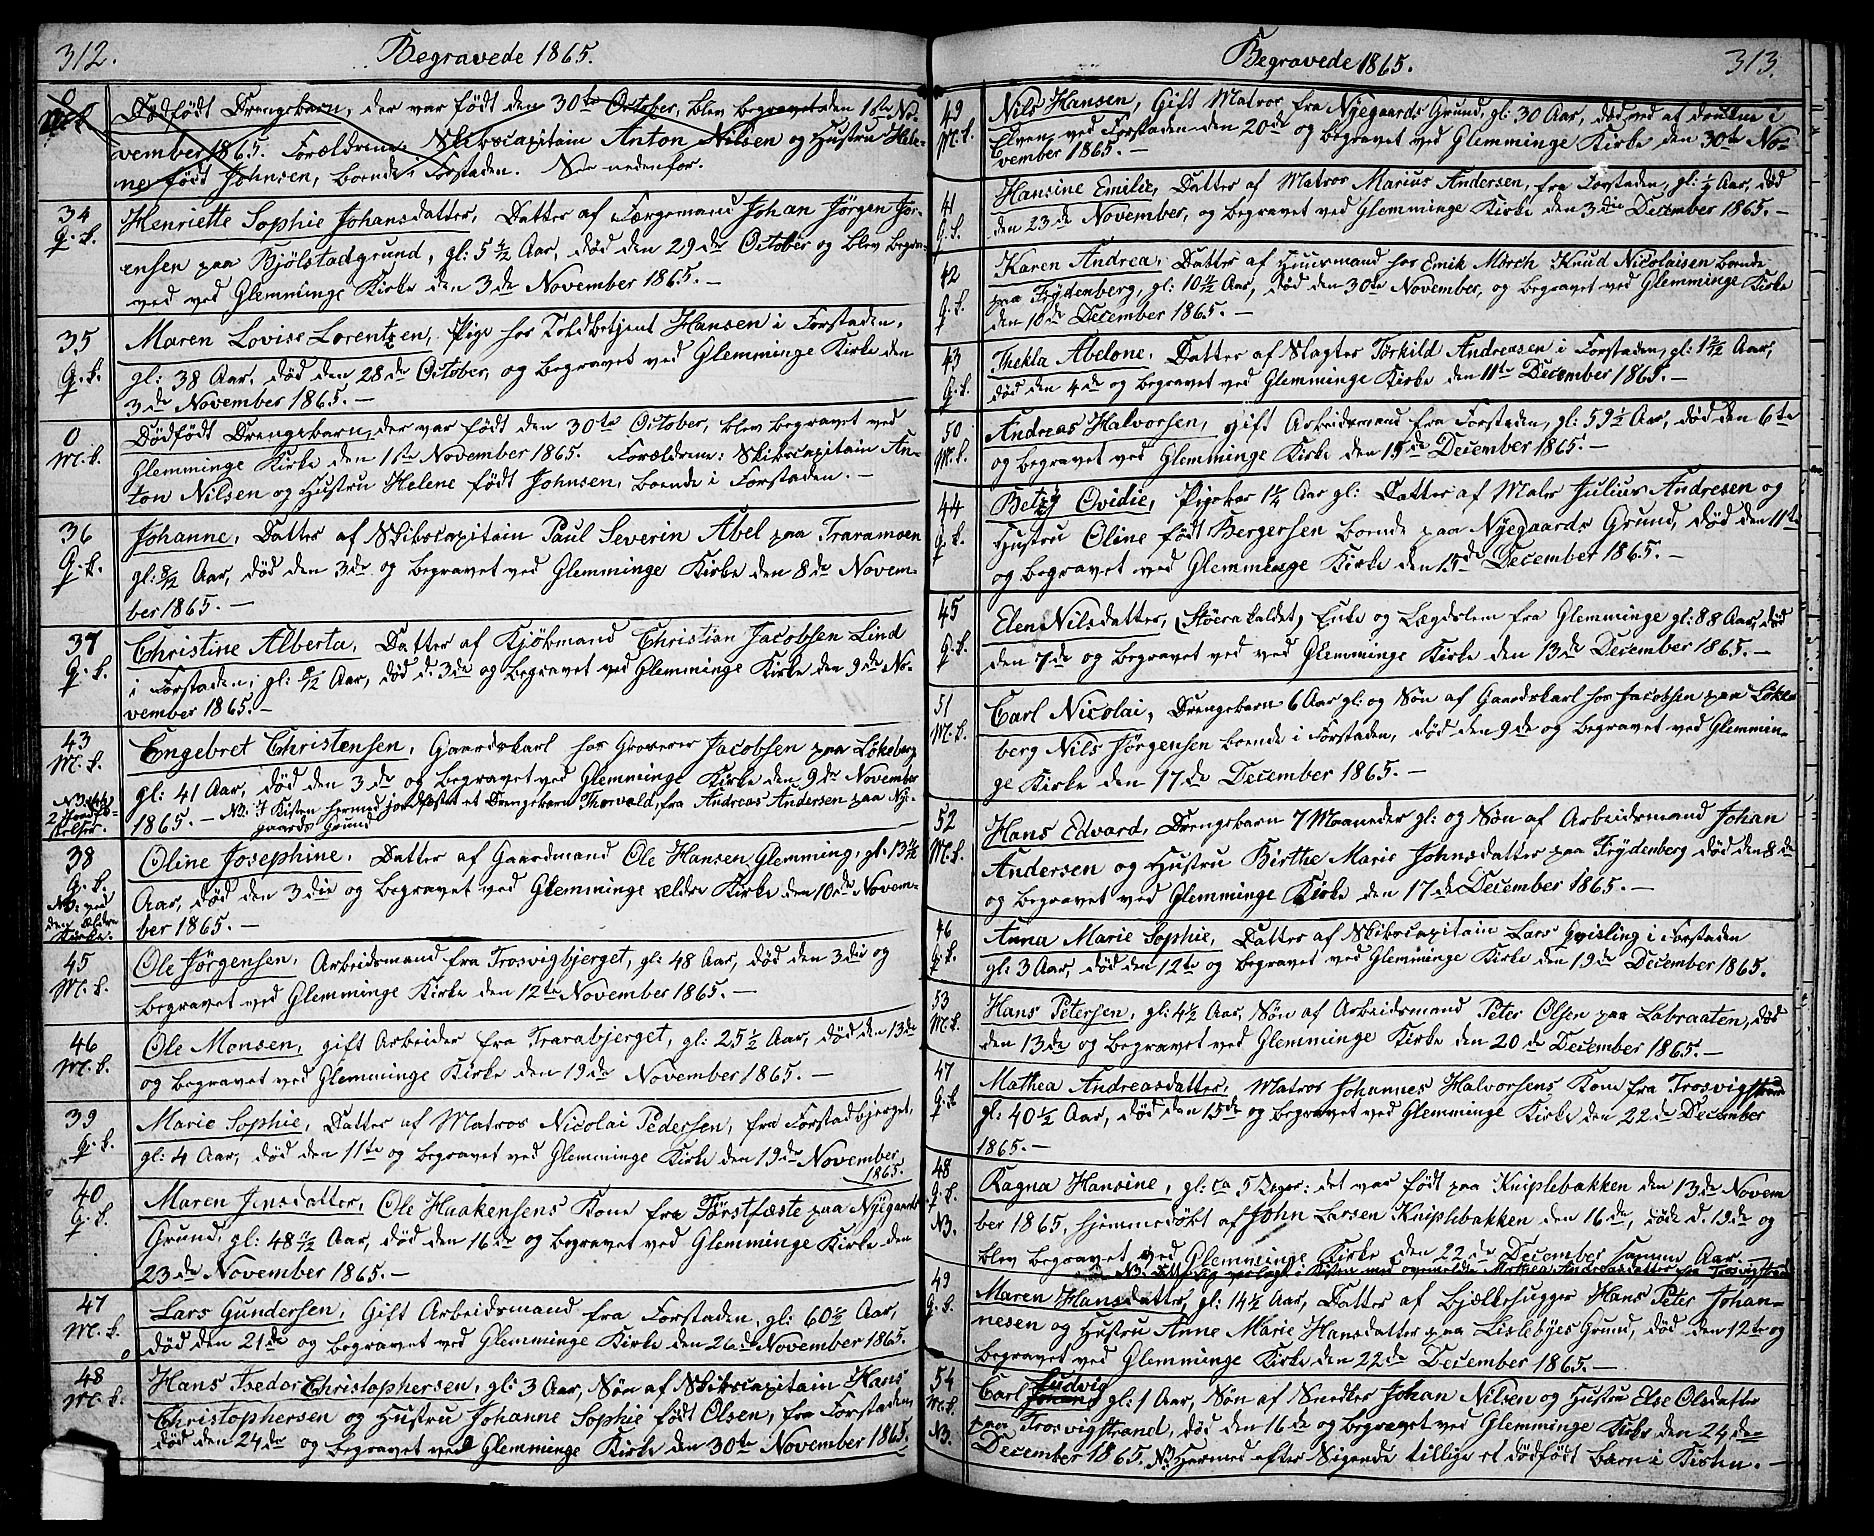 312.
Begravede 1865.
0
M.k.
Dødfødt Drengebarn, der var født den 30te October, blev begravet den 1ste No-
vember 1865. Forældrene Skibscapitain Anton Nilsen og Hustru Hele-
ne født Johnsen, boende i Forstaden. Se nedenfor.
34
Q.k.
Henriette Sophie Johansdatter, Datter af Færgemand Johan Jörgen Jör-
ensen paa Bjölstadgrund, gl: 5 1/2 Aar, död den 29de October og blev begra-
vet ved Glemminge Kirke den 3de November 1865. —
35
Q.k.
Maren Lovise Lorentzen, Pige hos Toldbetjent Hansen i Forstaden,
gl: 38 Aar, död den 28de October, og begravet ved Glemminge Kirke den
3de November 1865. —
0
M.k.
Dödfödt Drengebarn, der var födt den 30te October, blev begravet ved
Glemminge Kirke den 1ste November 1865. Forældrene: Skibscapitain An-
ton Nilsen og Hustru Helene födt Johnsen, boende i Forstaden. —
36
Q.k.
Johanne, Datter af Skibscapitain Paul Severin Abel paa Traramoen
gl: 8/12 Aar, död den 3de og begravet ved Glemminge Kirke den 8de Novem-
ber 1865. —
37
Q.k.
Christine Alberta, Datter af Kjöbmand Christian Jacobsen Lind
i Forstaden, gl: /12 Aar, död d. 3de og begravet ved Glemminge Kirke den 9de No-
vember 1865. —
43
M.k.
Engebret Christensen, Gaardskarl hos Jacobsen paa Lökeberg
gl: 41 Aar, död den 3de og begravet ved Glemminge Kirke den 9de November
1865. — NB: I Kisten hermed jordfæstet et Drengebarn Thorvald, fra Andreas Andersen paa Ny-
gaards Grund
38
Q.k.
NB: ved
den ældre
Kirke.
Oline Josephine, Datter af Gaardmand Ole Hansen Glemming, gl: 13 1/2
Aar, död den 3die og begravet ved Glemminge ældre Kirke den 10de Novem-
ber 1865. —
45
M.k.
Ole Jörgensen, Arbeidsmand fra Trosvigbjerget, gl: 48 Aar, död den 3die og
begravet ved Glemminge Kirke den 12te November 1865. —
46
M.k.
Ole Monsen, gift Arbeider fra Trarabjerget, gl: 25 1/2 Aar, död den 13de
og begravet ved Glemminge Kirke den 19de November 1865. —
39
Q.k.
Marie Sophie, Datter af Matros Nicolai Pedersen, fra Forstadbjerget,
gl: 4 Aar, död den 11te og begravet ved Glemminge Kirke den 19de November
1865.
40
Q.k.
Maren Jensdatter, Ole Haakensens Kone fra Törstfæste paa Nyegaards
Grund, gl: 48 1/2 Aar, död den 16de og begravet ved Glemminge Kirke den
23de November 1865. —
47
M.k.
Lars Gundersen, Gift Arbeidsmand fra Forstaden, gl: 60 1/2 Aar,
död den 21de og begravet ved Glemminge Kirke den 26de November 1865.
48
M.k.
Hans Isedor Christophersen, gl: 3 Aar, Sön af Skibscapitain Hans
Christophersen og Hustru Johanne Sophie födt Olsen, fra Forstaden,
död den 24de og begravet ved Glemminge Kirke den 30te November 1865.
Begravede 1865.
313.
49
M.k.
Nils Hansen, Gift Matros fra Nyegaards Grund, gl: 30 Aar, död ved at drukne i
Elven ved Forstaden den 20de og begravet ved Glemminge Kirke den 30te No-
vember 1865. —
41
Q.k.
Hansine Emilie, Datter af Matros Marius Andersen, fra Forstaden, gl: 1/2 Aar, död
den 23de November, og begravet ved Glemminge Kirke den 3die December 1865. —
42
Q.k.
Karen Andrea, Datter af Huusmand hos Emik Mörch Knud Nicolaisen boende
paa Frydenberg, gl: 10 1/2 Aar, död den 30te November, og begravet ved Glemminge Kirke
den 10de December 1865. —
43
Q.k.
Thekla Abelone, Datter af Slagter Törkild Andreasen i Forstaden, gl: 1 2/12 Aar,
död den 4de og begravet ved Glemminge Kirke den 11te December 1865. —
50
M.k.
Andreas Halvorsen, gift Arbeidsmand fra Forstaden, gl: 59 1/2 Aar, död den 6te
og begravet ved Glemminge Kirke den 15de December 1865. —
44
Q.k.
Betzy Ovidie, Pigebar 1 1/2 Aar gl: Datter af Maler Julius Andresen og
Hustru Oline födt Bergersen boende paa Nyegaards Grund, död den 11te
og begravet ved Glemminge Kirke den 15de December 1865. —
45
Q.k.
Elen Nilsdatter, (Störra kaldet) Enke og Lægdslem fra Glemminge gl: 88 Aar, död
den 7de og begravet ved ved Glemminge Kirke den 13de December 1865. —
51
M.k.
Carl Nicolai, Drengebarn 6 Aar gl: og Sön af Gaardskarl hos Jacobsen paa Löke-
berg Nils Jörgensen boende i Forstaden, död den 9de og begravet ved Glemmin-
ge Kirke den 17de December 1865. —
52
M.k.
Hans Edvard, Drengebarn 7 Maaneder gl: og Sön af Arbeidsmand Johan
Andersen og Hustru Birthe Marie Johnsdatter paa Frydenberg död den 8de
og begravet ved Glemminge Kirke den 17de December 1865. —
46
Q.k.
Anna Marie Sophie, Datter af Skibscapitain Lars Qvisling i Forstaden
gl: 3 Aar, död den 12te og begravet ved Glemminge Kirke den 19de December 1865.
53
M.k.
Hans Petersen, gl: 4 1/2 Aar, Sön af Arbeidsmand Peter Olsen paa Labraaten, död
den 13de og begravet ved Glemminge Kirke den 20de December 1865. —
47
Q.k.
Mathea Andreasdatter, Matros Johannes Halvorsens Kone fra Trosvigstrand
gl: 40 1/2 Aar, död den 15de og begravet ved Glemminge Kirke den 22de December
1865. —
48
Q.k.
NB.
Ragna Hansine, gl: ca 5 Uger: det var födt paa Kniplebakken den 13de Novem
ber 1865, hjemmedöbt af John Larsen Kniplebakken den 16de, döde d. 19de og
blev begravet ved Glemminge Kirke den 22de December samme Aar.
NB. i Kisten med ovenmeldte Mathea Andreasdatter fra Trosvigstrand
49
Q.k.
Maren Hansdatter, gl: 14 1/2 Aar, Datter af Bjælkehugger Hans Peter Johan-
nesen og Hustru Anne Marie Hansdatter paa Lislebyes Grund, död den 12te og
begravet ved Glemminge Kirke den 22de December 1865. —
54
M.k.
NB.
Ludvig
Carl Johan, gl: 1 Aar, Sön af Snedker Johan Nilsen og Hustru Else Olsdatter
paa Trosvigstrand, död den 16de og begravet ved Glemminge Kirke den 24de
December 1865. NB. Hermed efter Sigende tillige et dödfödt Barn i Kisten. —